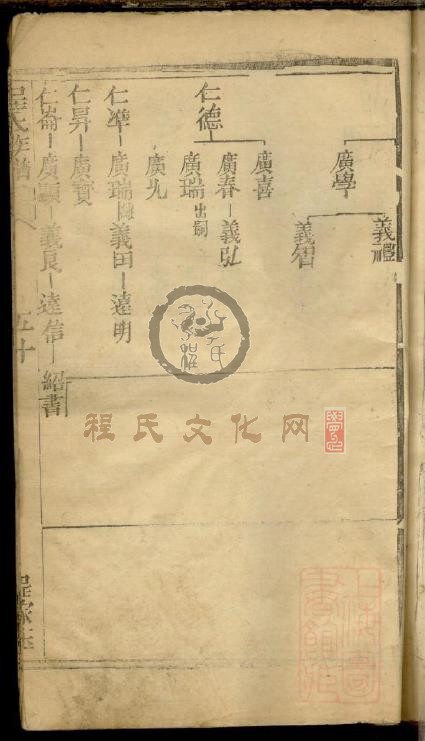 廣學
義禮
義智
仁德
廣喜
廣春 義弘
廣瑞 出嗣
廣允
仁準 廣瑞 義田 遠明
仁昇 廣寶
仁崙 廣顯 義良 遠信 紹書
程氏族譜
五十
程氏文化网